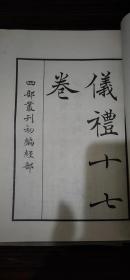 儀禮十七
卷
四部叢刊初編經部